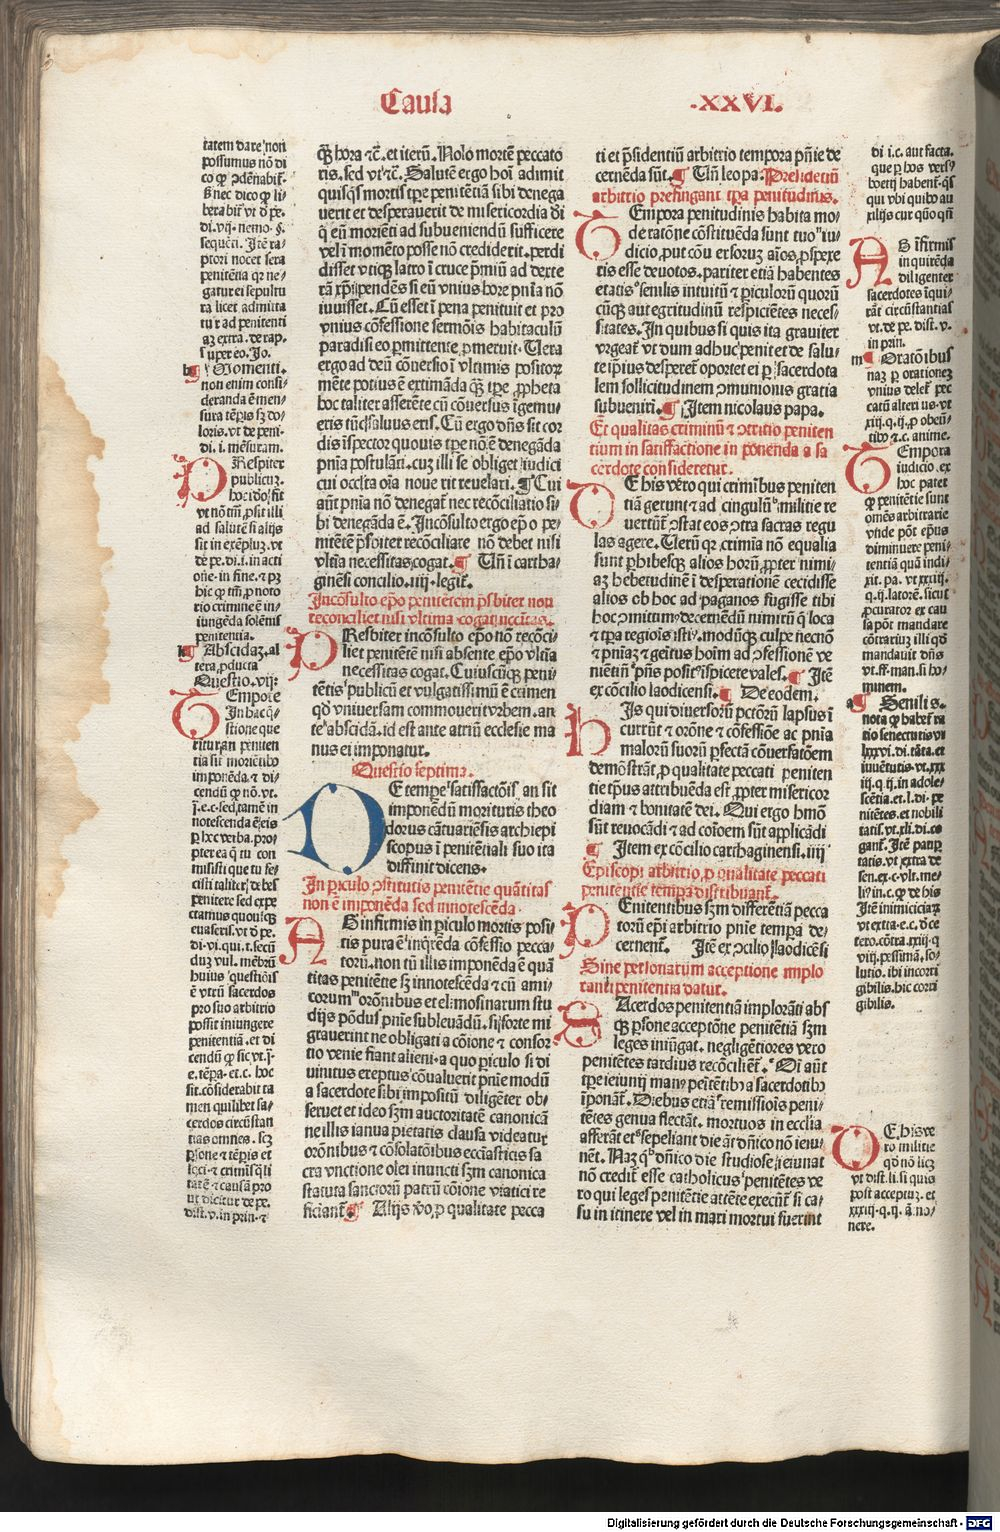 Causa .XXVI.
tatem dare: non
possumus nõ di
co ꝙ ↄdẽnabit̃.
bera bit̃ vt õ pe.
di. vij. nemo. §.
ptori nocet sera
penitẽtia qr ne-
gatur ei sepultu
ra licet admitta
tur ad penitenti
az extra. de rap.
super eo. Jo.
Momenti.
non enim consi-
deranda ẽ men-
sura tẽpis sz do-
loris. vt de peni.
di. i. mẽsuram.
PRespiter
publicuz.
ad salutẽ si alijs
sit in exẽpluz. vt
de pe. di. i. in acti
one. in fine. ⁊ pz
rio crimine ẽ in-
iungẽda solẽnis
penitentia.
Abscidaz. al
tera, ꝓducta
Questio. vij.
TEmpore
In hac q̃-
stione que
ritur an peniten
tia sit moriẽtibꝰ
imponẽda. ⁊ di-
cendũ ꝙ nõ. vt.
j̃. e. c. sed tamẽ in
notescenda ẽ eis
p̱ hec verba. pro
pter ea q̃ tu con
misisti que tu fe-
cisti taliter debes
penitere sed expe
ctamus quousqȝ
euaseris. vt õ pe.
di. vi. qui. t. secũ
duz vul. mẽbrũ
huius questiõis
ẽ vtrũ sacerdos
pro suo arbitrio
possit iniungere
penitentiã. et di
cendũ ꝙ sic vt. j̃.
e. tẽp̱a. et. c. hoc
sit. cõsiderabit ta
men quilibet sa-
cerdos circũstan
tias omnes. scȝ
p̱sone ⁊ tẽp̱is et
loci ⁊ crimis q̃li
tatẽ ⁊ causã pro
ut dicitur de pe.
dist. v. in prin. ⁊
q̃ȝ hora ⁊c̃. et iterũ. Nolo mortẽ peccato
ris. sed vt ⁊c̃. Salutẽ ergo hoi adimit
quisq̃s mortis tp̱e penitẽtiã sibi denega
uerit et desperauerit de misericordia dĩ
q̃ eũ moriẽti ad subueniendũ sufficere
vel ĩ momẽto posse nõ crediderit. perdi
disset vtiqȝ latro ĩ cruce p̱miũ ad dexte
rã xp̱i pendẽs si eũ vnius hore pnĩa nõ
iuuisset. Cũ esset ĩ pena penituit et pro
vnius cõfessione sermõis habitaculũ
paradisi eo ꝑmittente ꝓmeruit. Uera
ergo ad deũ cõuersio ĩ vltimis positoꝝ
mẽte potius ẽ extimãda q̃ȝ tp̱e, ꝓpheta
hoc taliter asserẽte cũ cõuersus ĩgemu-
eris tũc saluus eris. Cũ ergo dñs sit cor
dis ĩspector quouis tp̱e nõ ẽ denegãda
pnĩa postulãti. cuȝ illi se obliget iudici
cui occlta oĩa nouerit reuelari. ¶ Cui
aũt pnĩa nõ denegat̃ nec recõciliatio si-
bi denegãda ẽ. Incõsulto ergo ep̱o pe-
nitẽtẽ p̱sbiter recõciliare nõ debet nisi
vltĩa necessitas cogat. ¶ Un̄ ĩ cartha-
ginẽsi concilio. iij. legit̃.
Incõsulto ep̱o penitẽtem p̱sbiter non
reconciliet nisi vltima cogat necc̃itas.
PResbiter incõsulto ep̱o nõ recõci-
liet penitẽtẽ nisi absente ep̱o vltĩa
necessitas cogat. Cuiuscũqȝ peni-
tẽtis publicũ et vulgatissimũ ẽ crimen
qd̃ vniuersam commouerit vrbem. an
te abscidã. id est ante atriũ ecclesie ma
nus ei imponatur.
Questio septima.
DE tempe satisfactõis an sit
imponẽdũ morituris theo
dorus cãtuariẽsis archiepi
scopus ĩ penitẽtiali suo ita
diffinit dicens.
In p̱iculo ↄstitutis penitẽtie quãtitas
non ẽ imponẽda sed innotescẽda.
AB infirmis in p̱iculo mortis posi-
tis pura ẽ inq̃rẽda cõfessio pecca-
torũ. non tñ illis imponẽda ẽ quã
titas penitẽtie sȝ innotescẽda ⁊ cũ ami-
corum orõnibus et elimosinarum stu
dijs põdus pnĩe subleuãdũ. si forte mi
grauerint ne obligati a cõione ⁊ consor
tio venie fiant alieni. a quo p̱iculo si di
uinitus ereptus cõualuerit pnĩe modũ
a sacerdote sibi impositũ diligẽter ob-
seruet et ideo sȝm auctoritatẽ canonicã
ne illis ianua pietatis clausa videatur
orõnibus ⁊ cõsolatõibus ecclasticis sa
cra vnctione olei inuncti sȝm canonica
statuta sanctorũ patrũ cõione viatici re
ficiant̃. ¶ Alijs v̾o, ꝓ qualitate pecca
ti et p̱sidentiũ arbitrio tempora pnĩe de
cernẽda sũt. ¶ Un̄ leo pa. Presidentiũ
arbitrio prefingant̃ tp̱a penitudinis.
TEmpora penitudinis habita mo-
deratõne cõstituẽda sunt tuo iu-
dicio, ꝓut cõuersoruȝ aĩos ꝑspexe
ris esse deuotos. pariter etiã habentes
etatis senilis intuitũ ⁊ p̱iculorũ quorũ
cũqȝ aut egritudinũ respiciẽtes neces-
sitates. In quibus si quis ita grauiter
vrgeat̃ vt dum adhuc penitet de salu-
te ipius desperet̃ oportet ei p̱ sacerdota
lem sollicitudinem ↄmunionis gratia
subueniri. ¶ Item nicolaus papa.
Et qualitas criminũ ⁊ ↄtritio peniten
tium in satisfactione in ponenda a sa
cerdote consideretur.
DE his vero qui crimĩbus peniten
tiã gerunt ⁊ ad cingulũ militie re
uertũt̃ ↄstat eos ↄtra sacras regu
las agere. Uerũ qr crimĩa nõ equalia
sunt p̱hibesqȝ alios horũ, ꝓpter nimi-
aȝ hebetudinẽ ĩ desperationẽ cecidisse
alios ob hoc ad paganos fugisse tibi
hoc ↄmittim decernẽdũ nimirũ q̃ loca
⁊ tp̱a regiõis isti, modũqȝ culpe necnõ
⁊ pnĩaȝ ⁊ gẽitus hoĩm ad ↄfessionẽ ve
niẽtiũ p̱ns posit ĩspicere vales. ¶ Itẽ
ex cõcilio laodicensi. ¶ De eodem.
HIs qui diuersorũ pctõrũ lapsus ĩ
currũt ⁊ orõne ⁊ cõfessiõe ac pnĩa
malorũ suorũ p̱fectã cõuersatõem
demõstrãt, ꝓ qualitate peccati peniten
tie tp̱us attribuẽda est, ꝓpter misericor
diam ⁊ bonitatẽ dei. Qui ergo hmõi
sũt reuocãdi ⁊ ad coĩoem sũt applicãdi
¶ Item ex cõcilio carthaginensi. iij
Episcopi arbitrio, ꝓ qualitate peccati
penitentie tempora distribuant̃.
PEnitentibus sȝm differẽtiã pecca
torũ ep̱i arbitrio pnĩe temp̱a de-
cernent̃. Itẽ ex ↄcilio laodicẽsi
Sine personarum acceptione implo
ranti penitentia datur.
SAcerdos penitentiã implorãti abs
q̃ȝ p̱sone acceptõne penitẽtiã sȝm
leges iniũgat. negligẽtiores vero
penitẽtes tardius recõciliet̃. Oĩ aũt
tp̱e ieiunij manꝰ penitẽtibꝰ a sacerdotibꝰ
ĩponãt̃. Diebus etiã remissiõis peni-
tẽtes genua flectãt. mortuos in ecclĩa
afferãt et sepeliant die aũt dñico nõ ieiu
nẽt. Naȝ q̃ dñico die studiose ieiunat
nõ credit̃ esse catholicus penitẽtes ve
ro qui leges penitẽtie attẽte exeq̃nt̃ si ca-
su in itinere vel in mari mortui fuerint
di i. c. aut facta.
AB ĩfirmis
in quirẽda
diligenter
sacerdotes ĩqui-
rãt circũstantias
vt. de pe. dist. v.
in prin.
Oratõibus
naȝ p̱ orationeȝ
TEmpora
iudicio. ex
hoc patet
ꝙ penitẽtie sunt
omẽs arbitrarie
vnde põt ep̱us
diminuere peni-
tentiã quã indi-
xit. pa. vt xxxiij.
q. ij. latorẽ. sicut
ꝓcurator ex cau
sa põt mandare
cõtrariuȝ illi qd̃
mandauit dñis
vt. ff. man. si ho-
minem.
Senilis.
nota ꝙ habet̃ ra
tio senectutis vt
lxxxvi. di. tãta. et
iuuẽtutis. vt. xx
iij. q. ij. in adole-
scẽtia. et. l. di. pe
nitẽtes. et nobili
tatis. vt. xli. di. co
gant̃. Itẽ paup̱
tatis. vt extra de
sen. ex. c. vlt. me-
liꝰ in. c. ꝙ de his
Itẽ inimiciciaȝ
vt extra. e. c. õ ce
tero. cõtra. xxiij. q
viij. pessimã. so-
lutio. ibi incorri
gibilis. hic corri
gibilis.
DE. his ve
ro militie
qd̃ nõ licȝ
vt dist. li. si quis
post acceptuȝ. et
xxxiij. q. ij. ã. no-
nere.
Digitalisierung gefördert durch die Deutsche Forschungsgemeinschaft - DFG